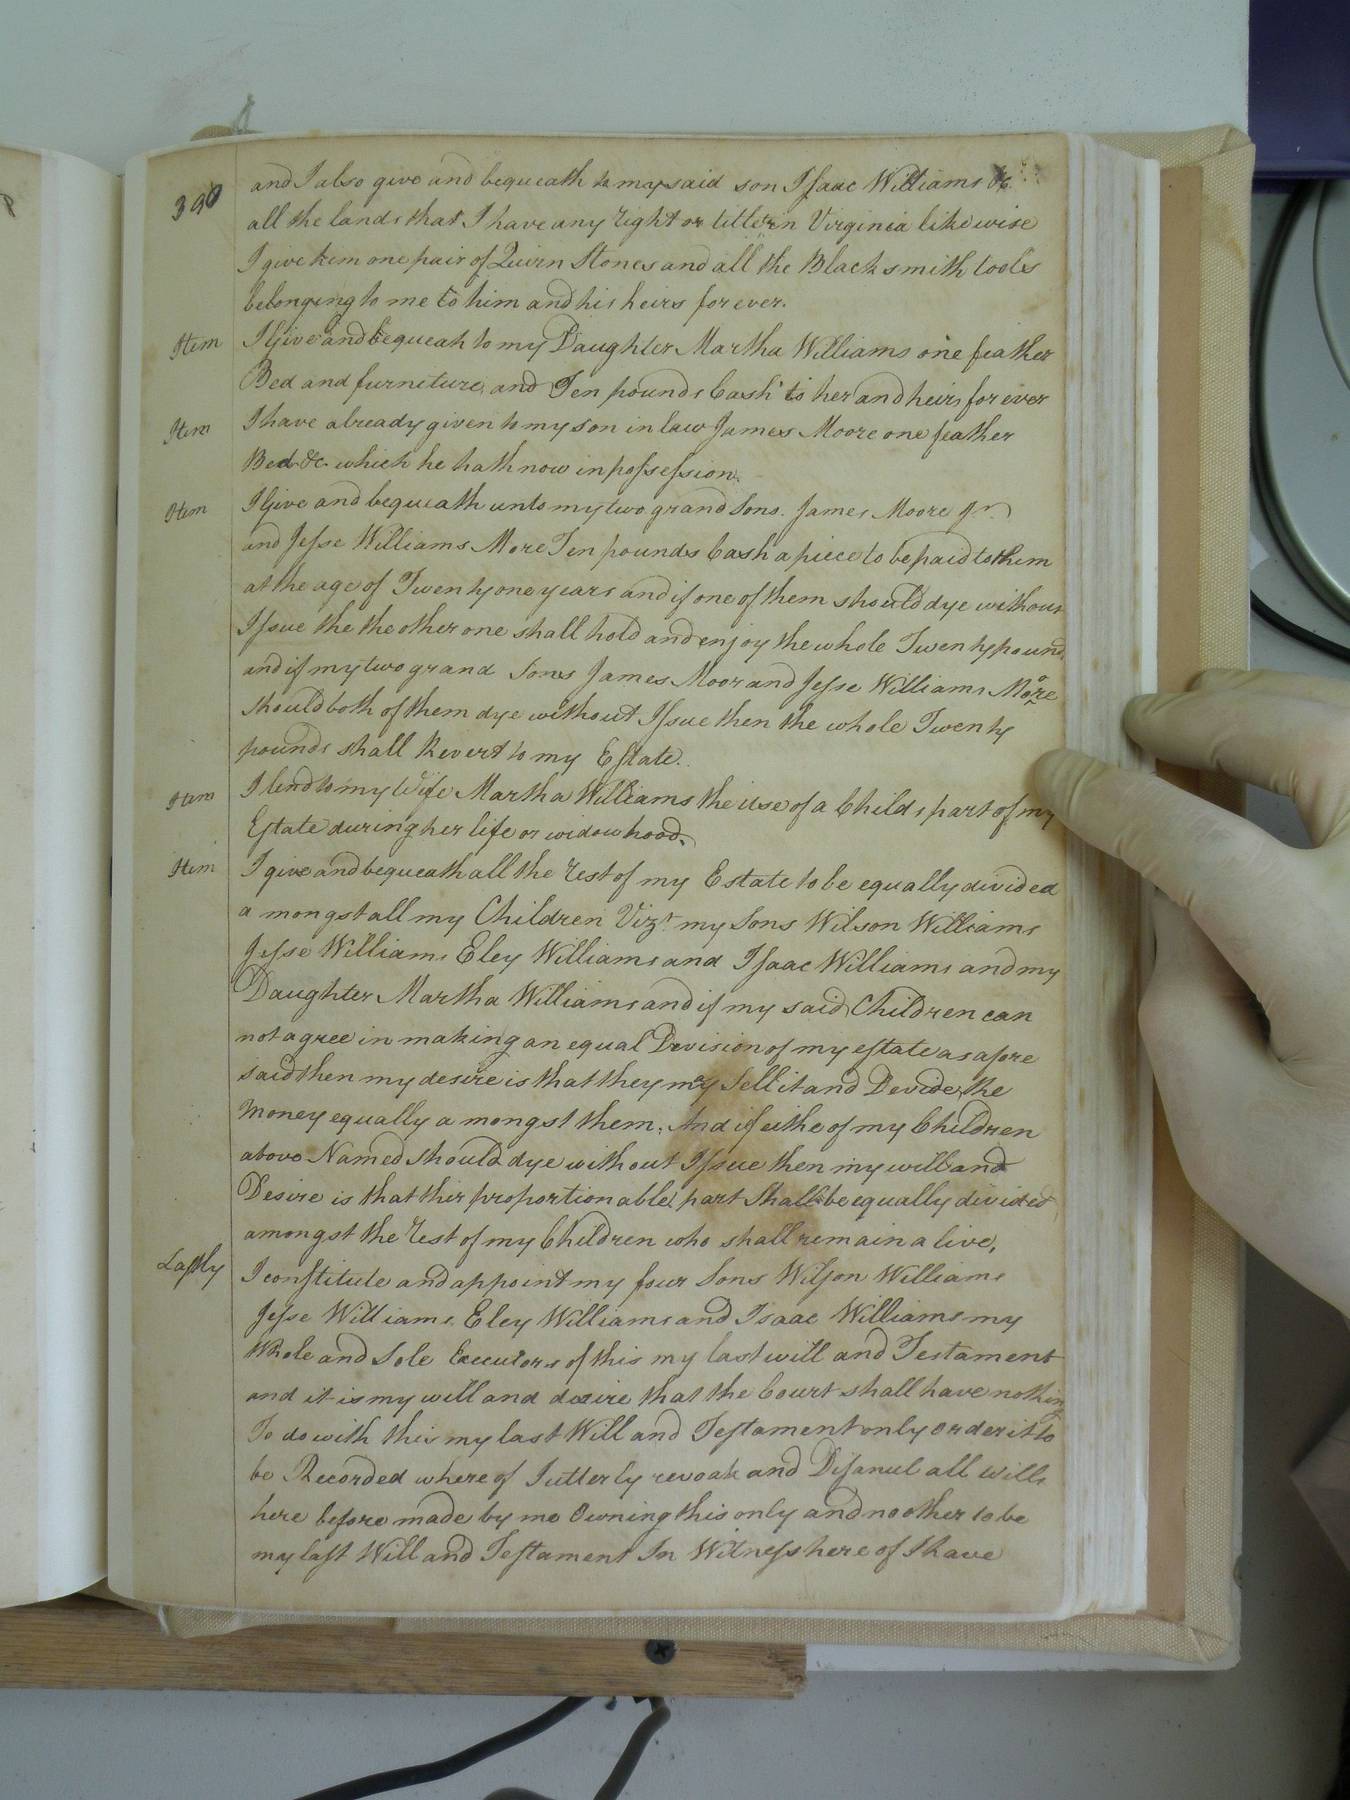 390
and I also give and bequeath to my said son Isaac Williams &c
all the lands that I have any right or tittle in Virginia likewise
I give him one pair of Quirn Stones and all the Black smith tools
belonging to me to him and his heirs for ever.
Item I Give and bequeah to my Daughter Martha Williams one feather
Bed and furneture, and Ten pounds Cash to her and heirs for ever
Item I have already given to my son in law James Moore one feather
Bed &c which he hath now in possession.
Item I Give and bequeath unto my two grand Sons. James Moore Jr.
and Jesse Williams More Ten pounds Cash a piece to be paid to them
at the age of Twenty one years and if one of them should dye without
Issue the the other one shall hold and enjoy the whole Twenty pound
and if my two grand Sons James Moor and Jesse Williams More
should both of them dye without Issue then the whole Twenty
pounds shall Revert to my Estate.
Item I lend to my Wife Martha Williams the use of a Childs part of my
Estate during her life or widowhood.
Item I give and bequeath all the rest of my Estate to be equally divided
a mongst all my Children Vizt. my Sons Wilson Williams
Jesse Williams Eley Williams and Isaac Williams and my
Daughter Martha Williams and if my said Children can
not agree in making an equal Devision of my estate as afore
said then my desire is that they may Sell it and Devide the
Money equally a mongst them. And if eithe of my Children
above Named should dye without Issue then my will and
Desire is that thir proportionable part Shall be equally divided
amongst the rest of my Children who shall remain a live,
Lastly I constitute and appoint my four Sons Wilson Williams
Jesse Williams Eley Williams and Isaac Williams my
Whole and Sole Executors of this my last will and Testament
and it is my will and desire that the Court shall have nothing
To do with this my last Will and Testament only order it to
be Recorded where of I utterly revoak and Disanul all wills
here before made by me Owning this only and no other to be
my last Will and Testament In Witness here of I have